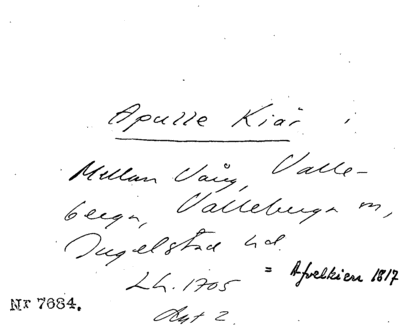 Apulle Kiär
Mellan Vång, Valle-
berga, Valleberga sn,
Ingelstad hd.
Lh. 1705
= Afvelkien 1817
Nr 7684. Akt 2